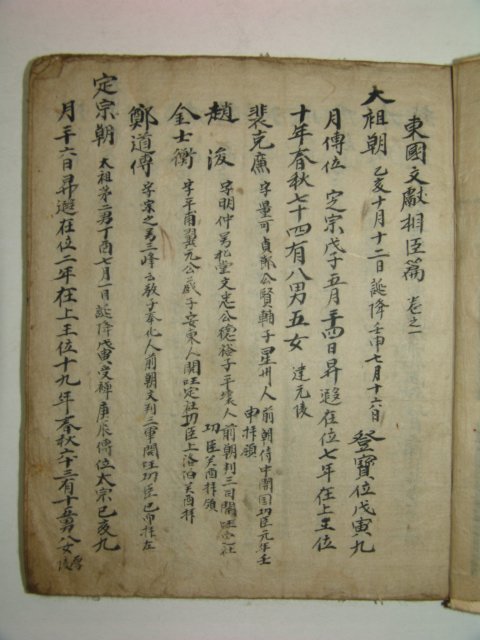 東國文獻相臣篇 卷之一
大祖朝 乙亥十月十二日誕降壬申七月十六日 登寶位戊寅九
月傳位 定宗戊子五月二十四日昇遐在位七年在上王位
十年春秋七十四有八男五女 建元陵
裴克廉 字量可貞節公賢輔子星州人 前朝侍中開國功臣元年壬申拜領
趙浚 字明仲号松堂文忠公德裕子平壤人 前朝判三司開國定社功臣癸酉拜領
金士衡 字平甫翼元公蕆子安東人開國定社功臣上洛伯癸酉拜
鄭道傳 字宗之号三峰云敬子奉化人前朝文判三軍開國功臣 拜左
定宗朝 太祖第二男丁酉七月一日誕降戊寅受禪庚辰傳位太宗己亥九
月二十六日昇遐在位二年在上王位十九年春秋六十三有十五男八女 厚陵